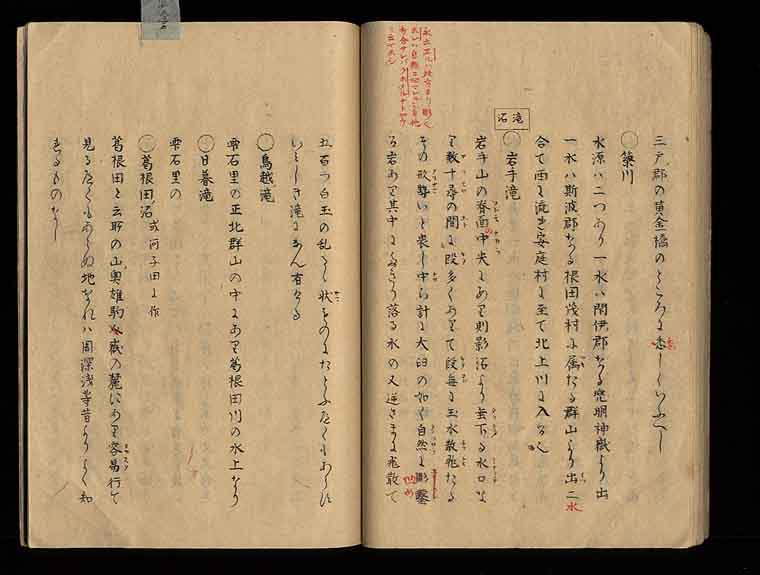 三戸郡の黄金橋のところに悉しくいふべし
○簗川
水源ハ二つあり一水ハ閉伊郡なる兜明神嶽より出
一水ハ斯波郡なる根田茂村に属たる群山より出二水
合て西に流き安庭村に至て北上川に入る也
滝 沼
○岩手滝
岩手山の脊面の中央にあり則影沼より垂下る水口な
り数十尋の間に段多くありて段毎に玉水散飛たる
その形勢いと長し中ら計に大臼の如く自然に彫鑿
る岩あり其中にたきり落る水の又逆さまに飛散て
五百つ白玉の乱るゝ状ものにたとふたくもあらす
いみしき滝になん有ける
○鳥越滝
雫石里の正北群山の中にあり葛根田川の水上なり
○日暮滝
雫石里の
○葛根田沼 或河子田に作
葛根田と云所の山奥雄駒嶽の麓にあり容易行て
見るたくもあらぬ地なれハ周深浅等昔よりよく知
するものなし